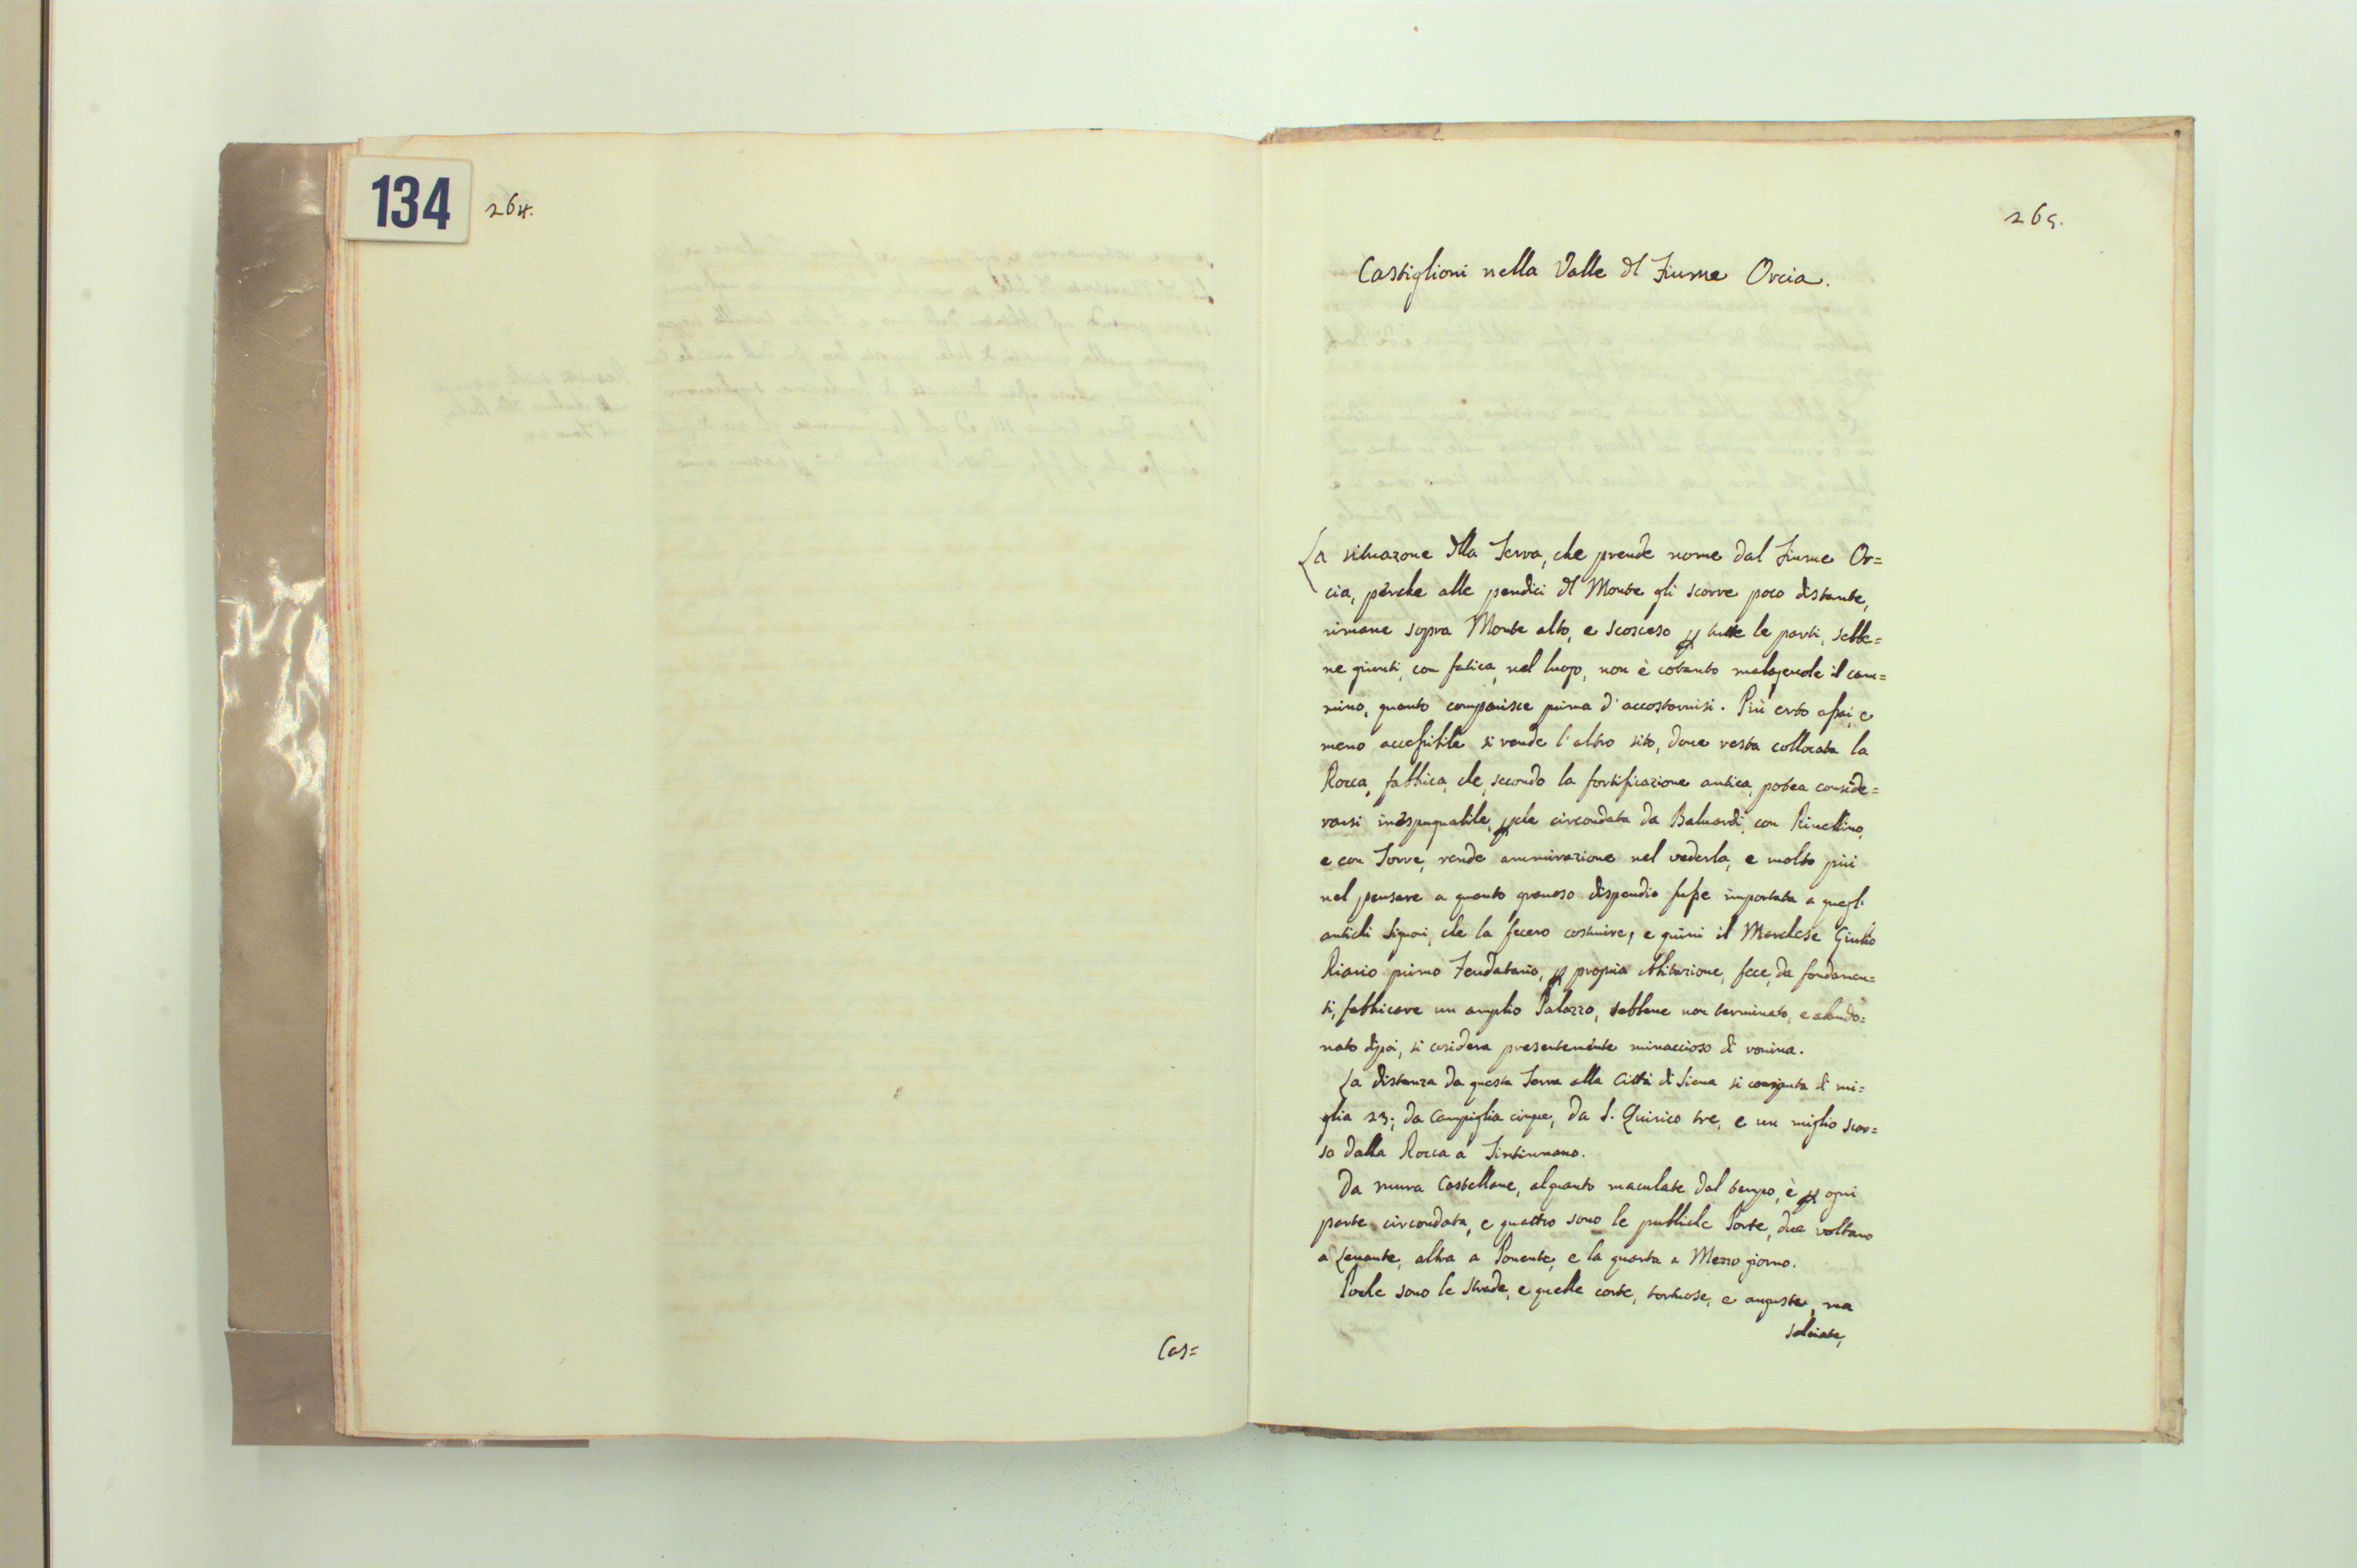 134
264.
Cas=
265.
Castiglioni nella Valle dl Fiume Orcia.
La situazione dlla Terra, che prende nome dal Fiume Or=
cia, perche alle pendici dl Monte gli scorre poco distante,
rimane sopra Monte alto, e scosceso p tutte le parti, sebbe=
ne giunti, con fatica, nel luogo, non è cotanto malagevole il cam=
mino, quanto comparisce prima d'accostarvisi. Più erto assai, e
meno accessibile si rende l'altro sito, dove resta collocata la
Rocca, fabbrica, che, secondo la fortificazione antica, potea conside=
rarsi inespugnabile, pche circondata da Baluardi, con Rivellino,
e con Torre, rende ammirazione nel vederla, e molto più
nel pensare a quanto gravoso dispendio fusse importata a quegli
antichi Signori, che la fecero costruire, e quivi il Marchese Giulio
Riario primo Feudatario, p propria Abitazione, fece, da fondamen=
ti, fabbricare un amplio Palazzo, sebbene non terminato, e abando=
nato dipoi, si cosidera presentemente minaccioso di rovina.
La distanza da questa Terra alla Città di Siena si computa di mi=
glia 23; da Campiglia cinque, da S. Quirico tre, e un miglio scar=
so dalla Rocca a Tintinnano.
Da mura Castellane, alquanto maculate dal tempo, è p ogni
parte circondata, e quattro sono le pubbliche Porte, due voltano
a Levante, altra a Ponente, e la quarta a Mezzo giorno.
Poche sono le Strade, e quelle corte, tortuose, e anguste, ma
selciate,